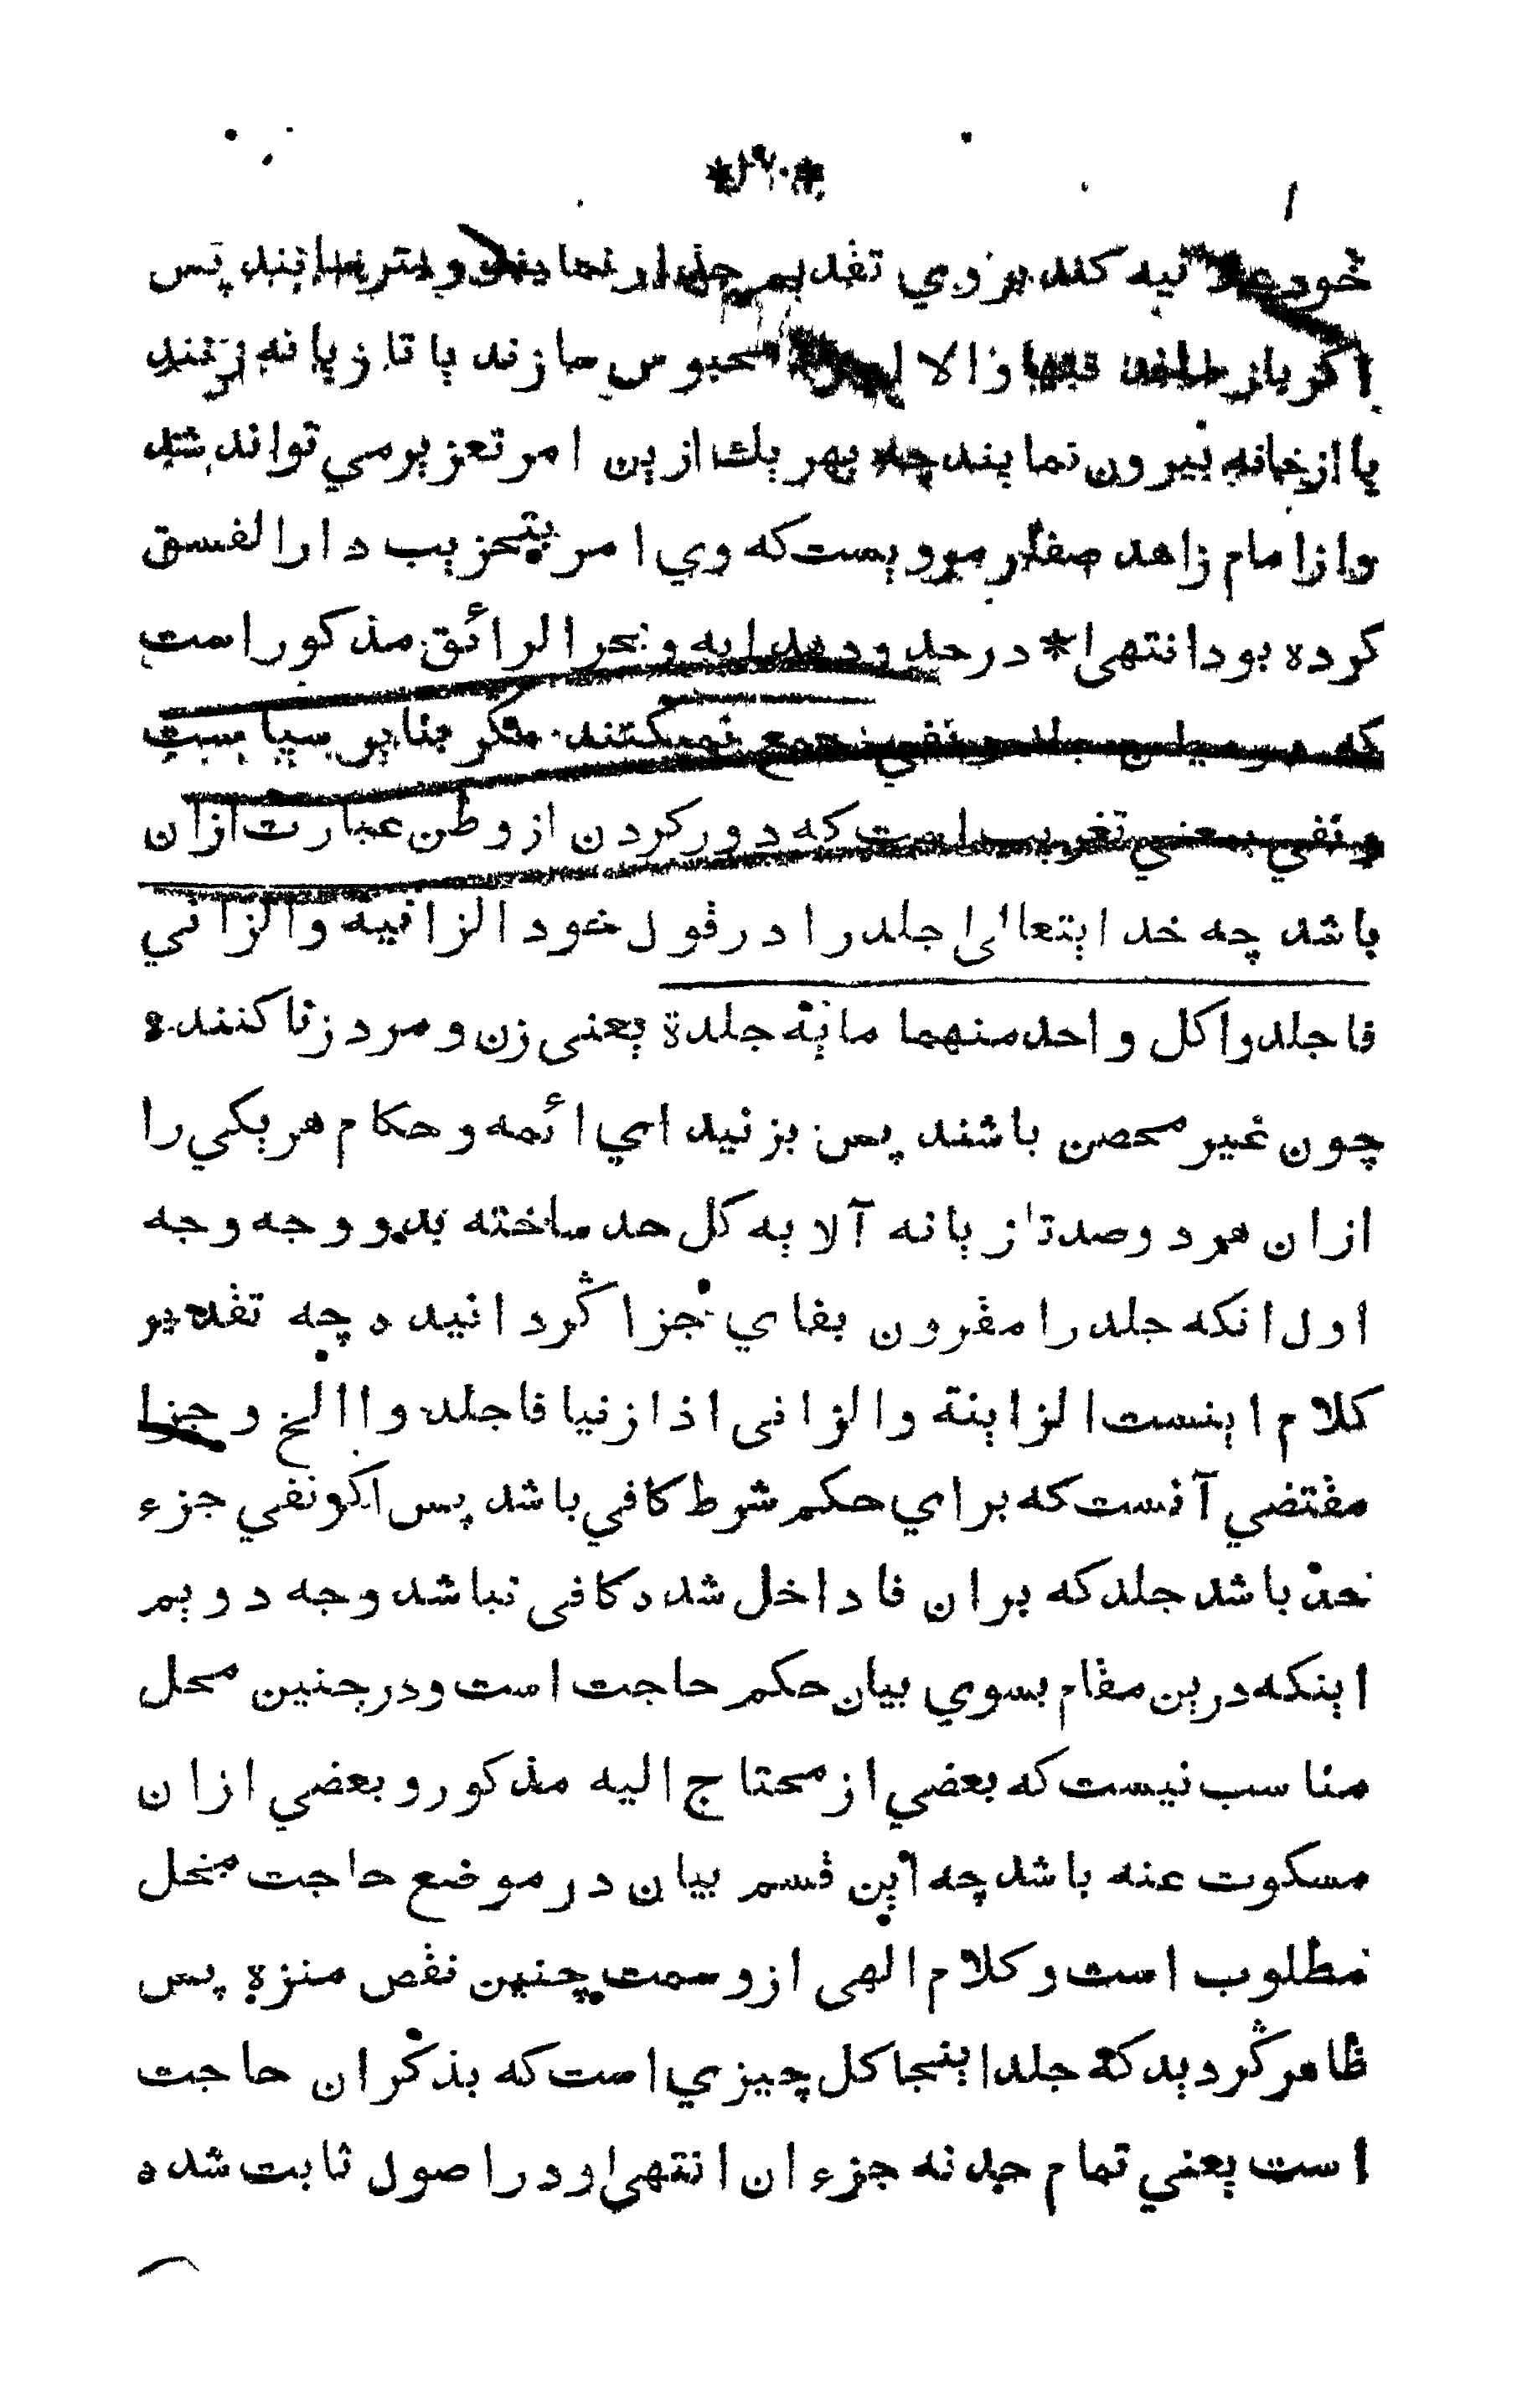 خود علانیه کند بروي تقدیم جذار نمایند و بترسانند پس
اگر باز ماند فبها والا محبوس سازند یا تازیانه زنند
یا ازخانه بیرون نمایند چه بهریك ازین امر تعزیرمي تواند شد
وازامام زاهد صفار مرویست که وي امر بتحزیب دارالفسق
کرده بود انتهی * درحدود هدایه و بحرالرائق مذکوراست
که درمیان جلد و نفي جمع نمیکنند مگر بنابر سیاست
و نفي بمعني تغریب است که دورکردن ازوطن عبارت ازان
باشد چه خدایتعالی جلدرا درقول خود الزانیه والزاني
فاجلدوا کل واحد منهما مایة جلدة یعنی زن ومرد زنا کننده
چون غیر محصن باشند پس بزنید اي ائمه وحکام هریکي را
ازان مرد وصدتازیانه آلایه کل حد ساخته بدو وجه وجه
اول انکه جلدرا مقرون بفاي جزا گردانیده چه تقدیر
کلام اینست الزاینة والزانی اذا زنیا فاجلدوا الخ وجزا
مقتضي آنست که براي حکم شرط کافي باشد پس اکر نفي جزء
حد باشد جلد که بران فا داخل شده کافی نباشد وجه دویم
اینکه درین مقام بسوي بیان حکم حاجت است ودرچنین محل
مناسب نیست که بعضي ازمحتاج الیه مذکور و بعضي ازان
مسکوت عنه باشد چه این قسم بیان در موضع حاجت مخل
مطلوب است وکلام الهی ازوسمت چنین نقص منزه پس
ظاهر گردید که جلد اینجا کل چیزي است که بذکران حاجت
است یعني تمام حد نه جزء ان انتهی ودر اصول ثابت شده